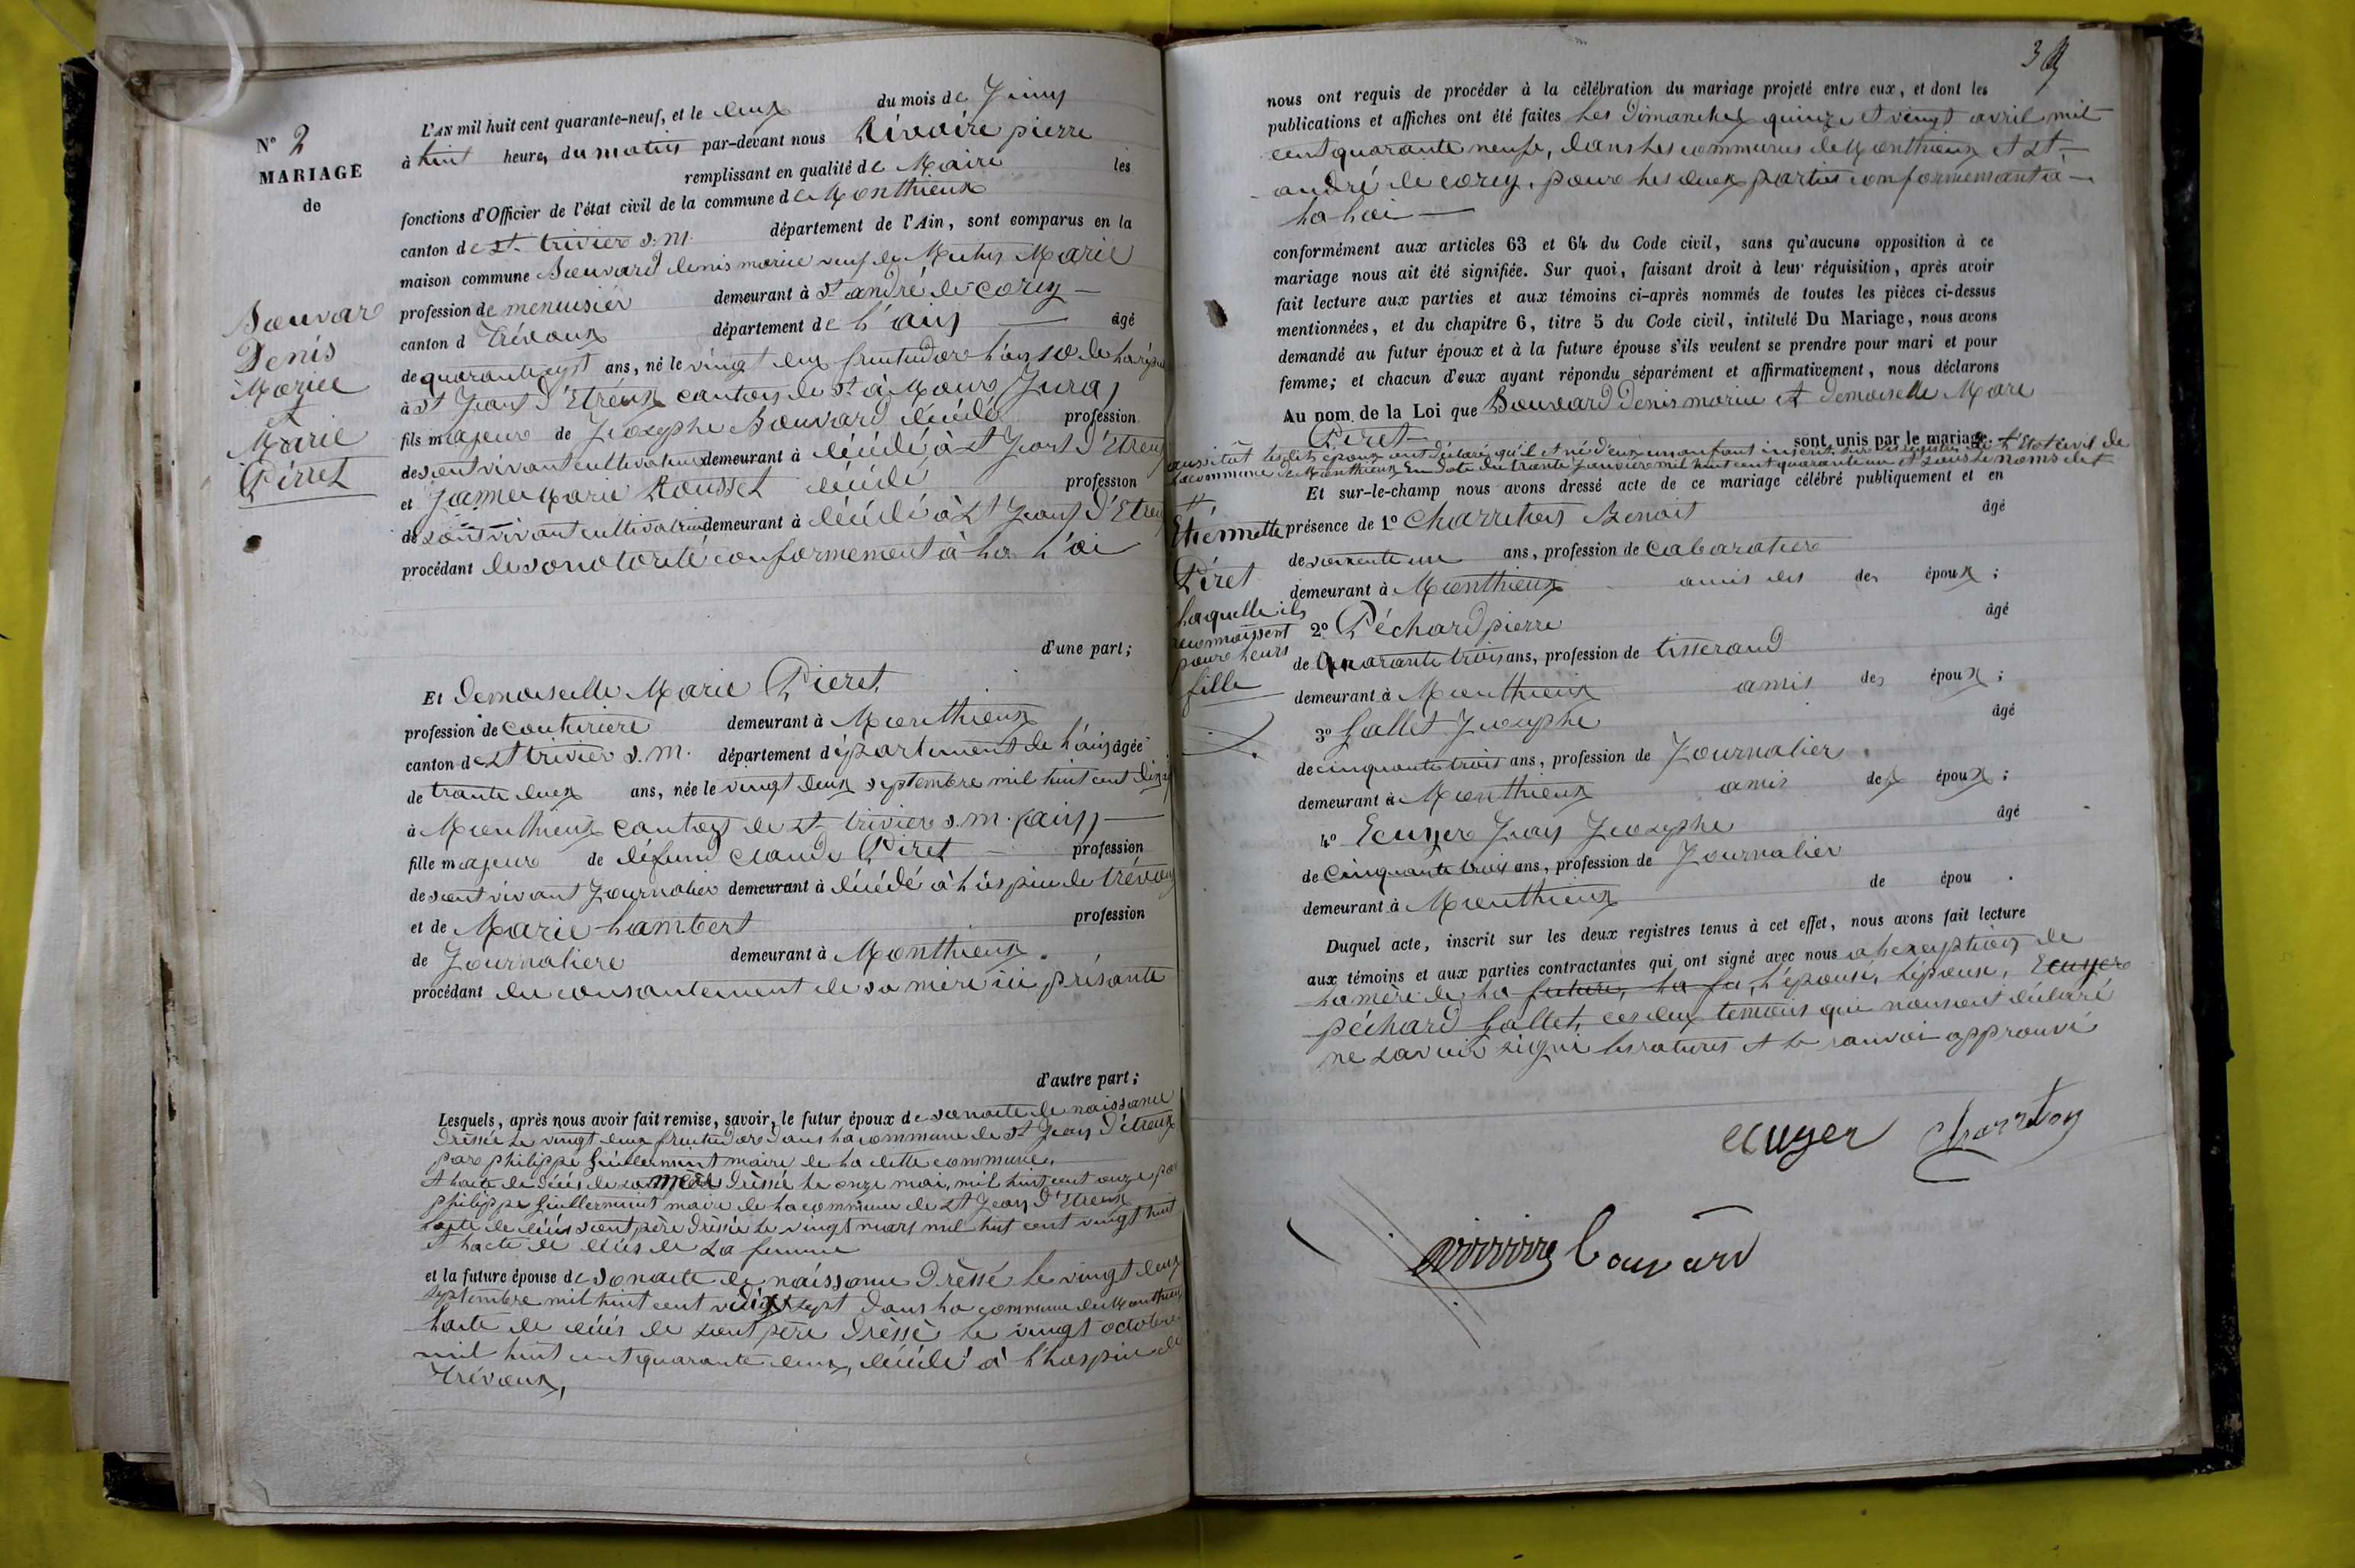 N° 2
MARIAGE
de
Bouvard
Denis
Marie
et
Marie
Pirret
L'AN mil huit cent quarante-neuf, et le deux du mois de Juin
à huit heures du matin par-devant nous Rivoire pierre
remplissant en qualité de Maire les
fonctions d'Officier de l'état civil de la commune de Monthieux
canton de St. trivier s. m. département de l'Ain, sont comparus en la
maison commune Bouvard denis marie veuf de Marie
profession de menuisier demeurant à St andré de corcy
canton d Trévoux département de l'ain âgé
de quarante sept ans, né le vingt deux fructidore l'an 10 de la répu
à St Jean d'Etreux canton de St amour Jura,
fils majeure de Josephe Bouvard décédé profession
de sont vivant cultivateur demeurant à décédé à St Jean d'Etreux
et Janne Marie Rousset décédé profession
de sont vivant cultivatrice demeurant à décédé à St Jean d'Etreux
procédant de sonotorité conformement à la l'oi
d'une part;
Et Demoiselle Marie Pieret
profession de couturiere demeurant à Monthieux
canton de St trivier s. m. département département de l'ain âgée
de trante deux ans, née le vingt deux septembre mil huit cent dix
à Monthieux canton de St trivier s. m. (ain)
fille majeure de défund Claude Piret profession
de sont vivant Journalier demeurant à décédé à l'ospice de trévoux
et de Marie Lambert profession
de Journaliere demeurant à Monthieux.
procédant du consantement de sa mère ici présante
d'autre part;
Lesquels, après nous avoir fait remise, savoir, le futur époux de sonacte de naissance
dressée le vingt deux fructidore dans la commune de St Jean d'étreux
pare philippe Guillermint maire de la ditte commune,
et l'acte de décés de sa mère dréssé le onze mai, mil huit cent onze par
philippe Guillermint maire de la commune de St Jean d'Etreux
l'acte de décés sont père dréssé le vingt mars mil huit cent vingt huit
et l'acte de décés de sa femme
et la future épouse de sonacte de naissance dréssé le vingt deux
septembre mil huit cent dix sept dans la commune de Monthieux
l'acte de décés de sont père dréssé le vingt octobre
mil huit cent quarante deux, décédé à l'hospice de
trévoux,
nous ont requis de procéder à la célébration du mariage projeté entre eux, et dont les
publications et affiches ont été faites les dimanches quinze et vingt avril mil
cent quarante neufe, dans les communes de Monthieux et St
andré de corcy. poure les deux parties conformemant a
la loi
conformément aux articles 63 et 64 du Code civil, sans qu'aucune opposition à ce
mariage nous ait été signifiée. Sur quoi, faisant droit à leur réquisition, après avoir
fait lecture aux parties et aux témoins ci-après nommés de toutes les pièces ci-dessus
mentionnées, et du chapitre 6, titre 5 du Code civil, intitulé Du Mariage, nous avons
demandé au futur époux et à la future épouse s'ils veulent se prendre pour mari et pour
femme; et chacun d'eux ayant répondu séparément et affirmativement, nous déclarons
Au nom de la Loi que Bouvard denis marie et demoiselle Marie
Piret sont unis par le mariage.
aussitôt lesdits époux ont déclaré qu'il et né d'eux un anfant inscrit sur les registres de l'Etat civil de
la commune de Monthieux En date du trante Janvier mil huit cent quarante un et sous le noms de
Et sur-le-champ nous avons dressé acte de ce mariage célébré publiquement et en
Etiennette
Piret
laquelle ils
reconnaissent
poure leurs
fille
présence de 1° Charreton Benoit âgé
de soixente un ans, profession de Cabaratier
demeurant à Monthieux amis des des époux;
2° Péchard pierre âgé
de quarante trois ans, profession de tisserand
demeurant à Monthieux amis des époux;
3° Gallet Josephe âgé
de cinquante trois ans, profession de Journalier
demeurant à Monthieux amis des époux;
4° Ecuyer Jean Josephe âgé
de Cinquante trois ans, profession de Journalier
demeurant à Monthieux de épou .
Duquel acte, inscrit sur les deux registres tenus à cet effet, nous avons fait lecture
aux témoins et aux parties contractantes qui ont signé avec nous a lexeption de
la mère de la future, la fu, l'épouse, Ecuyer
péchard Gallet, ces deux temoins qui nous ont déclaré
ne savoir signé les ratures et le ranvoi approuvé
ecuyer Charreton
Bouvard